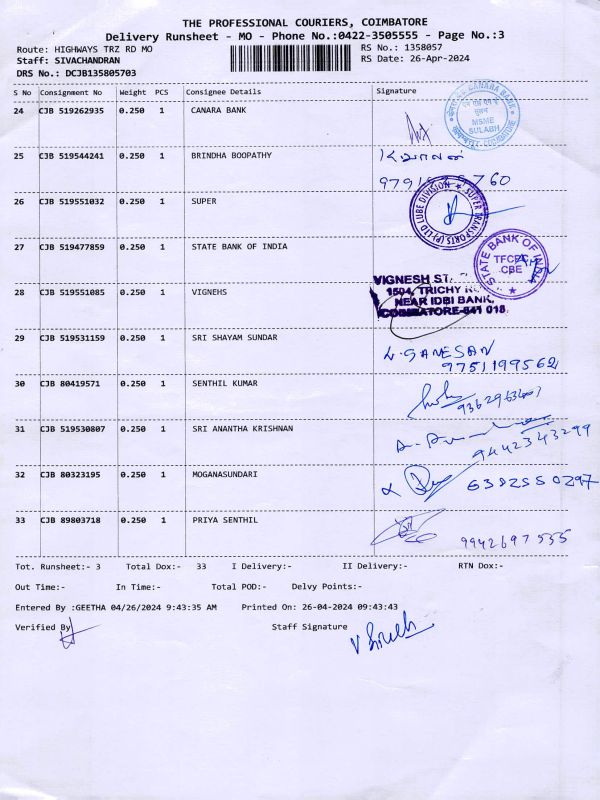 THE PROFESSIONAL COURIERS, COIMBATORE
Delivery Runsheet - MO - Phone No.:0422-3505555 - Page No.:3
Route: HIGHWAYS TRZ RD MO RS No.: 1358057
Staff: SIVACHANDRAN RS Date: 26-Apr-2024
DRS No.: DCJB135805703
S No Consignment No Weight PCS Consignee Details Signature
24 CJB 519262935 0.250 1 CANARA BANK
CANARA BANK
MSME
SULABH
COIMBATORE
25 CJB 519544241 0.250 1 BRINDHA BOOPATHY
26 CJB 519551032 0.250 1 SUPER
SUPER TRANSPORTS (P) LTD LUBE DIVISION
27 CJB 519477859 0.250 1 STATE BANK OF INDIA
STATE BANK OF INDIA
CBE
28 CJB 519551085 0.250 1 VIGNEHS
VIGNESH
1504, TRICHY
NEAR IDBI BANK,
COIMBATORE-641 018.
29 CJB 519531159 0.250 1 SRI SHAYAM SUNDAR
GANESAN
9751199562
30 CJB 80419571 0.250 1 SENTHIL KUMAR
31 CJB 519530807 0.250 1 SRI ANANTHA KRISHNAN
9442343299
32 CJB 80323195 0.250 1 MOGANASUNDARI
6382550297
33 CJB 89803718 0.250 1 PRIYA SENTHIL
9942697555
Tot. Runsheet:- 3 Total Dox:- 33 I Delivery:- II Delivery:- RTN Dox:-
Out Time:- In Time:- Total POD:- Delvy Points:-
Entered By :GEETHA 04/26/2024 9:43:35 AM Printed On: 26-04-2024 09:43:43
Verified By Staff Signature